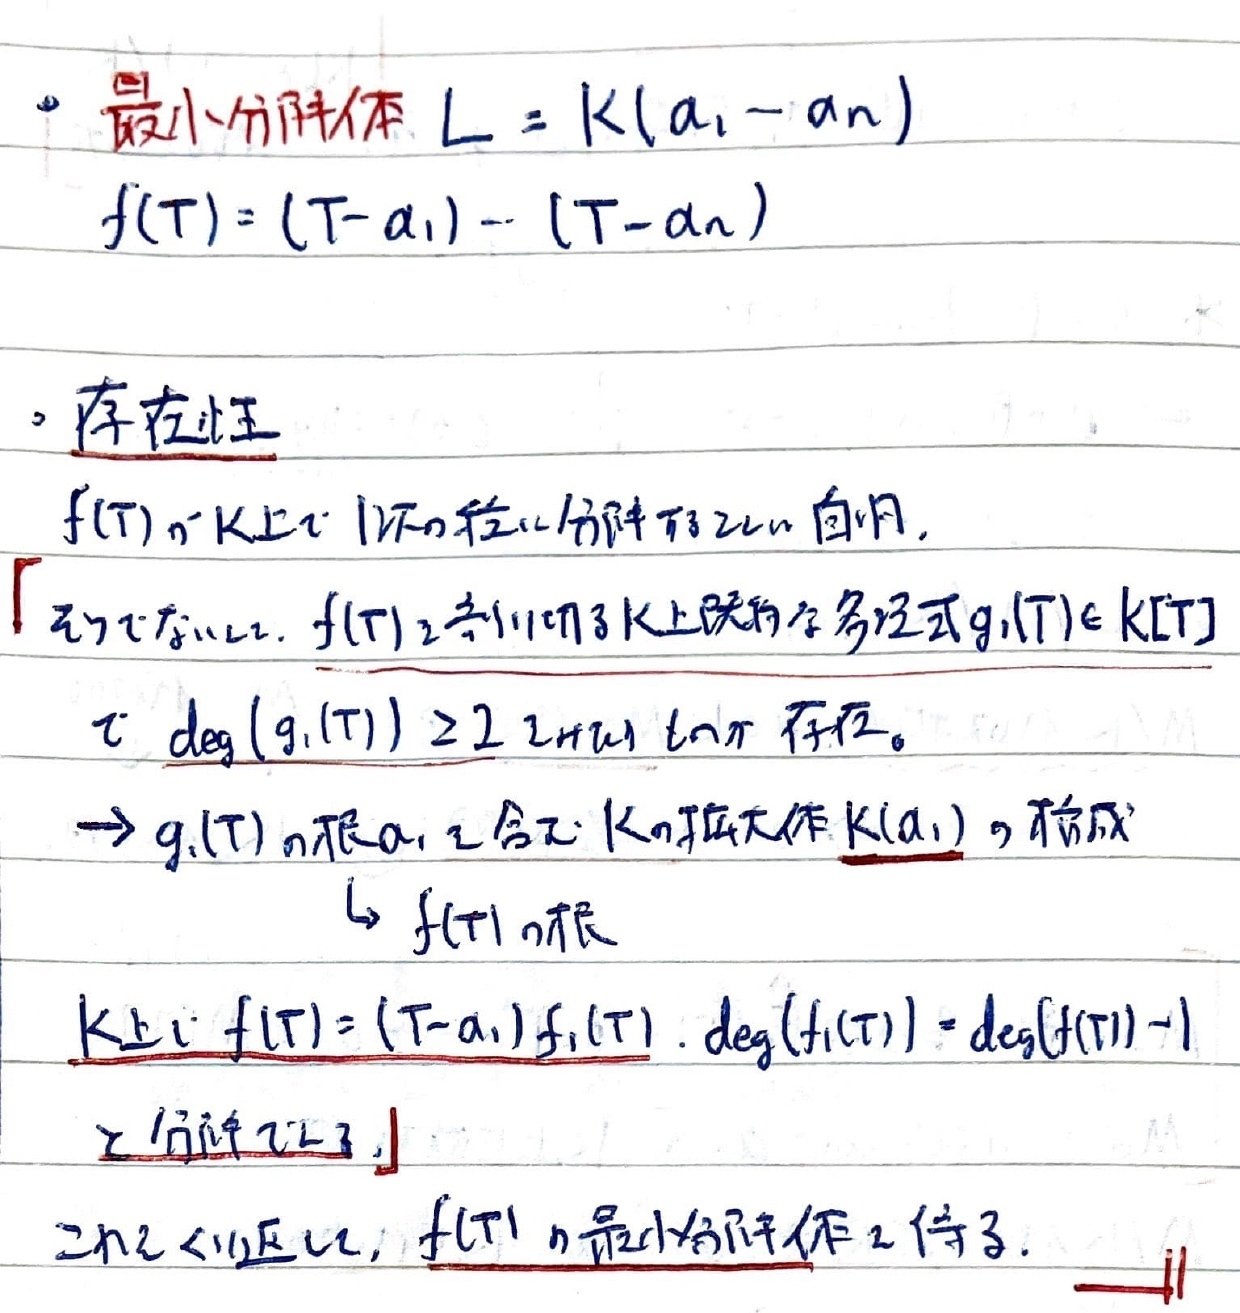 ・最小分解体 L = K(a₁ － aₙ)
f(T) = (T－a₁) -- (T－aₙ)
・存在性
f(T) が K上で 1次の積に分解するときは 自明.
「そうでないとして. f(T)を割り切る K上既約な多項式 g₁(T) ∈ K[T]
で deg(g₁(T)) ≥ 2 となるものが 存在。
→ g₁(T) の根 a₁ を含む Kの拡大体 K(a₁) を構成
↳ f(T) の根
K上で f(T) = (T－a₁) f₁(T) . deg(f₁(T)) = deg(f(T)) －1
と分解できる.」
これをくり返して, f(T) の最小分解体を得る.